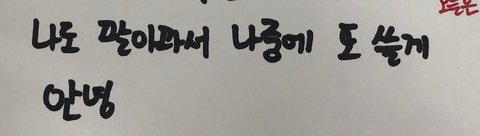 나도 팔아파서 나중에 또 쓸게
안녕